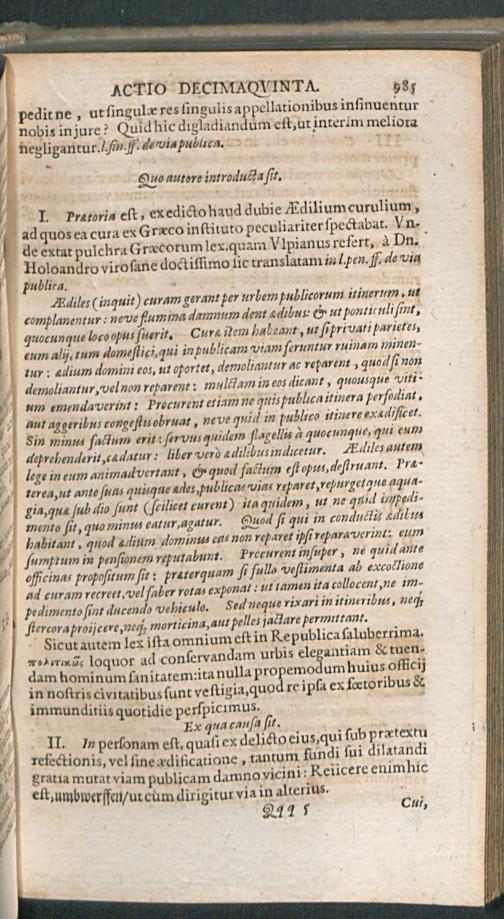 ACTIO DECIMAQVINTA. 985
pedit ne, ut ſingulæ res ſingulis appellationibus inſinuentur
nobis in jure? Quid hic digladiandum eſt, ut interim meliora
negligantur. l. fin. ff. de via publica.
Quo autore introducta ſit.
I. Prætoria eſt, ex edicto haud dubie Ædilium curulium,
ad quos ea cura ex Græco inſtituto peculiariter ſpectabat. Vn-
de extat pulchra Græcorum lex, quam Vlpianus refert, à Dn.
Holoandro viro ſane doctiſſimo ſic translatam in l. pen. ff. de via
publica.
Ædiles (inquit) curam gerant per urbem publicorum itinerum, ut
complanentur: neve flumina damnum dent ædibus: & ut ponticuli ſint,
quocunque loco opus fuerit. Curæ item habeant, ut ſi privati parietes,
cum alij, tum domeſtici, qui in publicam viam feruntur ruinam minen-
tur: ædium domini eos, ut oportet, demoliantur ac reparent, quod ſi non
demoliantur, vel non reparent: mulctam in eos dicant, quousque viti-
um emendaverint: Procurent etiam ne quis publica itinera perfodiat,
aut aggeribus congeſtis obruat, neve quid in publico itinere exædificet.
Sin minus factum erit: ſervus quidem flagellis à quocunque, qui eum
deprehenderit, cædatur: liber verò ædilibus indicetur. Ædiles autem
lege in eum animadvertant, & quod factum eſt opus, deſtruant. Præ-
terea, ut ante ſuas quisque ædes, publicas vias reparet, repurgetque aqua-
gia, quæ ſub dio ſunt (ſcilicet curent) ita quidem, ut ne quid impedi-
mento ſit, quo minus eatur, agatur. Quod ſi qui in conductis ædibus
habitant, quod ædium dominus eas non reparet ipſi reparaverint: eum
ſumptum in penſionem reputabunt. Procurent inſuper, ne quid ante
officinas propoſitum ſit: præterquam ſi fullo veſtimenta ab excoctione
ad curam recreet, vel faber rotas exponat: ut tamen ita collocent, ne im-
pedimento ſint ducendo vehiculo. Sed neque rixari in itineribus, neq;
ſtercora proijcere, neq; morticina, aut pelles jactare permittant.
Sicut autem lex iſta omnium eſt in Republica ſaluberrima.
πολιτικῶς loquor ad conſervandam urbis elegantiam & tuen-
dam hominum ſanitatem: ita nulla propemodum huius officij
in noſtris civitatibus ſunt veſtigia, quod re ipſa ex fœtoribus &
immunditiis quotidie perſpicimus.
Ex qua cauſa ſit.
II. In perſonam eſt, quaſi ex delicto eius, qui ſub prætextu
refectionis, vel ſine ædificatione, tantum fundi ſui dilatandi
gratia mutat viam publicam damno vicini: Reiicere enim hic
eſt, umbwerffen/ ut cùm dirigitur via in alterius.
Qqq 5 Cui,